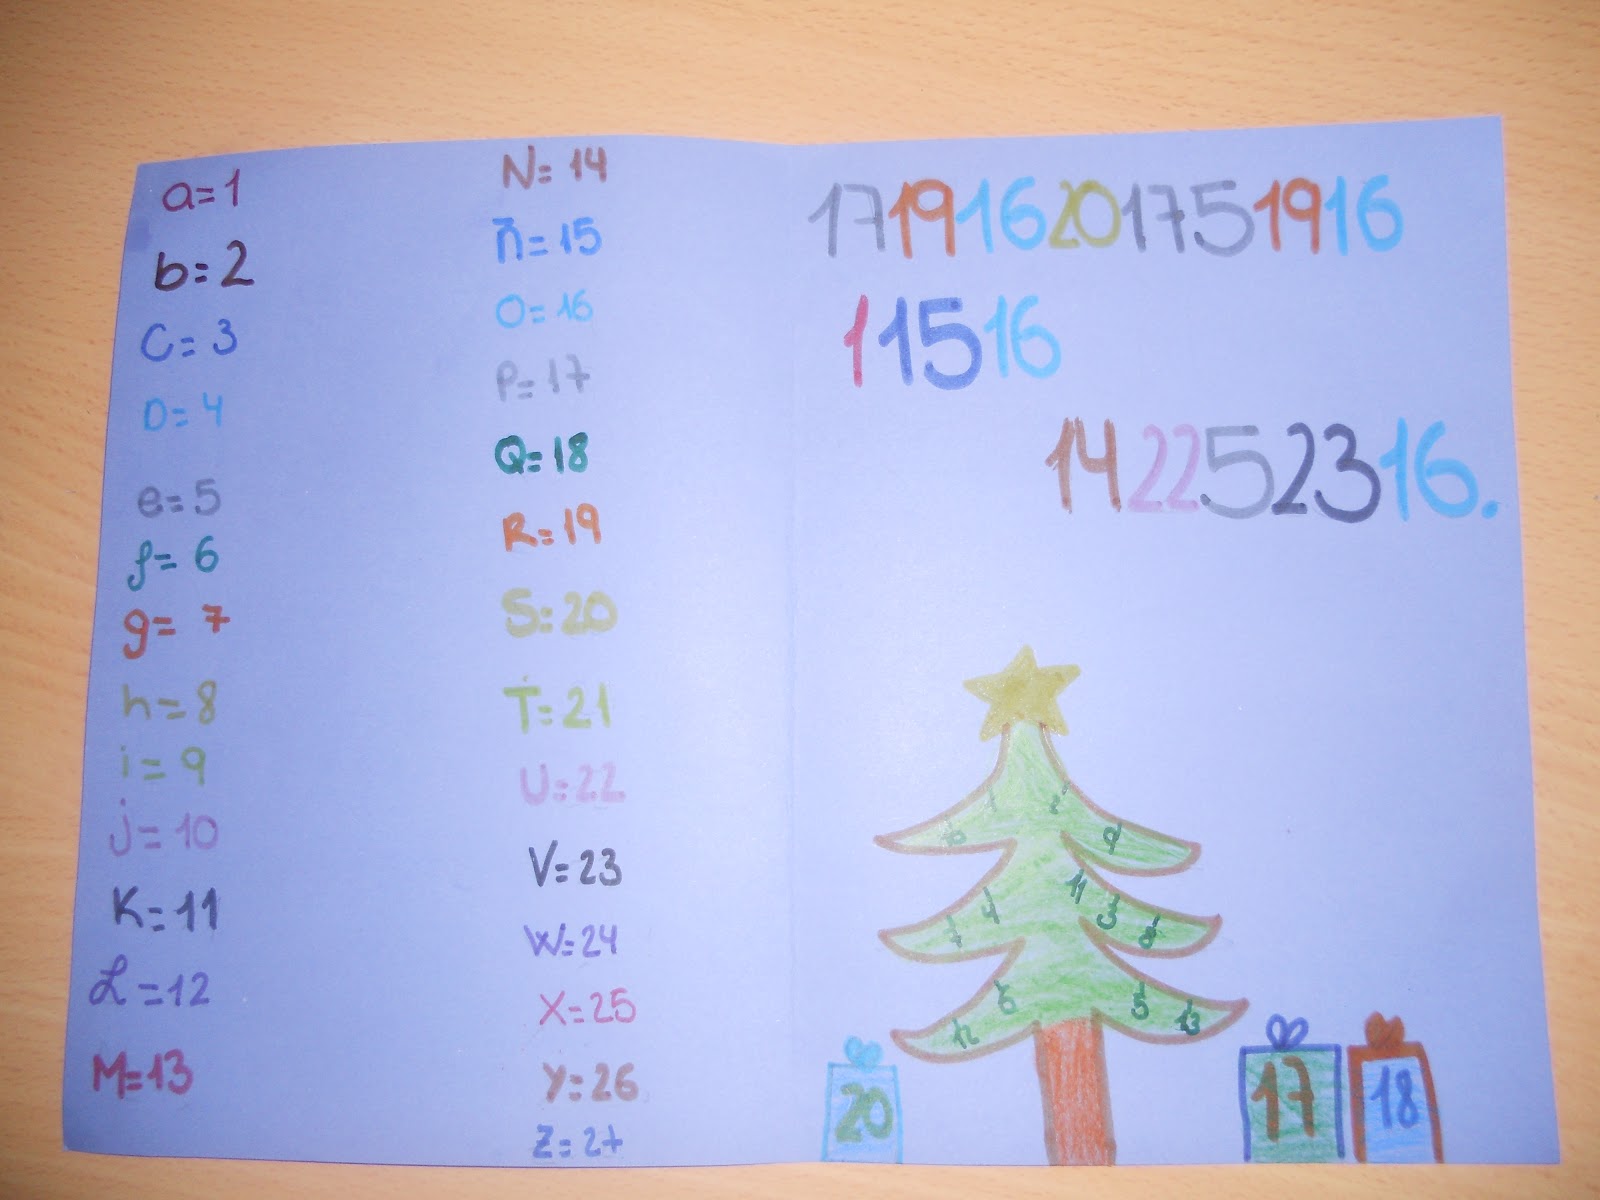 a=1
b=2
C=3
D=4
e=5
f=6
g=7
h=8
i=9
j=10
K=11
L=12
M=13
N=14
ñ=15
O=16
P=17
Q=18
R=19
S=20
T=21
U=22
V=23
W=24
X=25
Y=26
Z=27
17191620175191​6
11516
142252316.
1
2
9
11
3
8
4
7
6
5
12
13
20
17
18